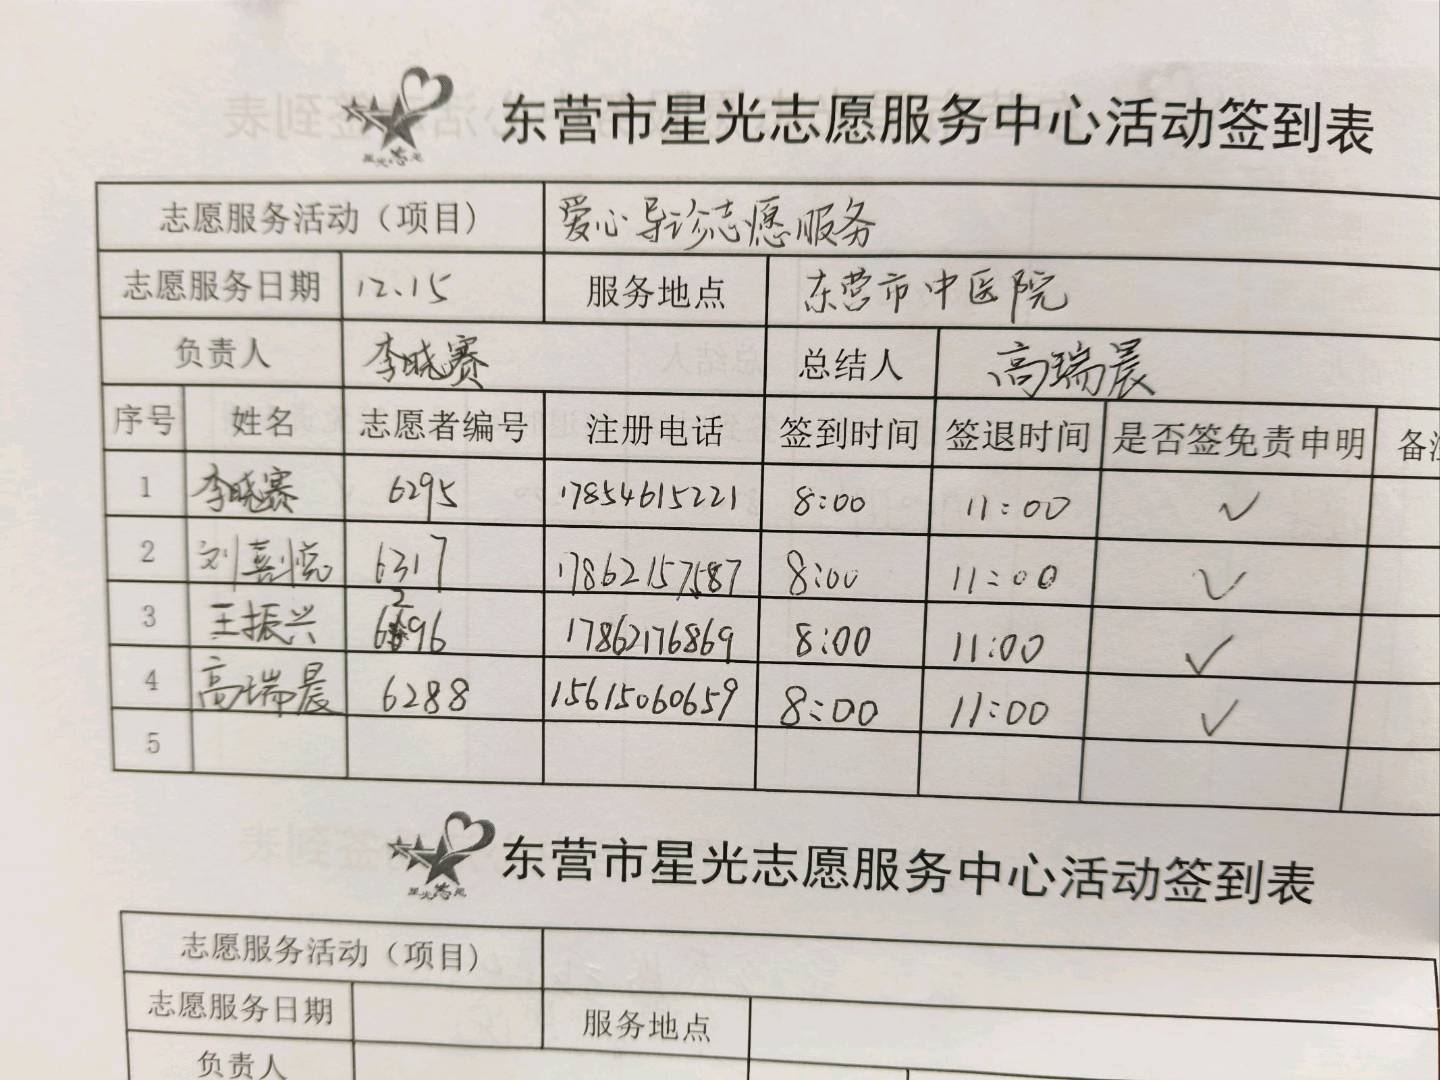 东营市星光志愿服务中心活动签到表
志愿服务活动（项目） 爱心导诊志愿服务
志愿服务日期 12.15 服务地点 东营市中医院
负责人 李晓赛 总结人 高瑞晨
序号 姓名 志愿者编号 注册电话 签到时间 签退时间 是否签免责申明 备注
1 李晓赛 6295 17854615221 8:00 11:00 ✓
2 刘喜悦 6317 17862157587 8:00 11:00 ✓
3 王振兴 6296 17862176869 8:00 11:00 ✓
4 高瑞晨 6288 15615060659 8:00 11:00 ✓
5
星光志愿
东营市星光志愿服务中心活动签到表
志愿服务活动（项目）
志愿服务日期 服务地点
负责人